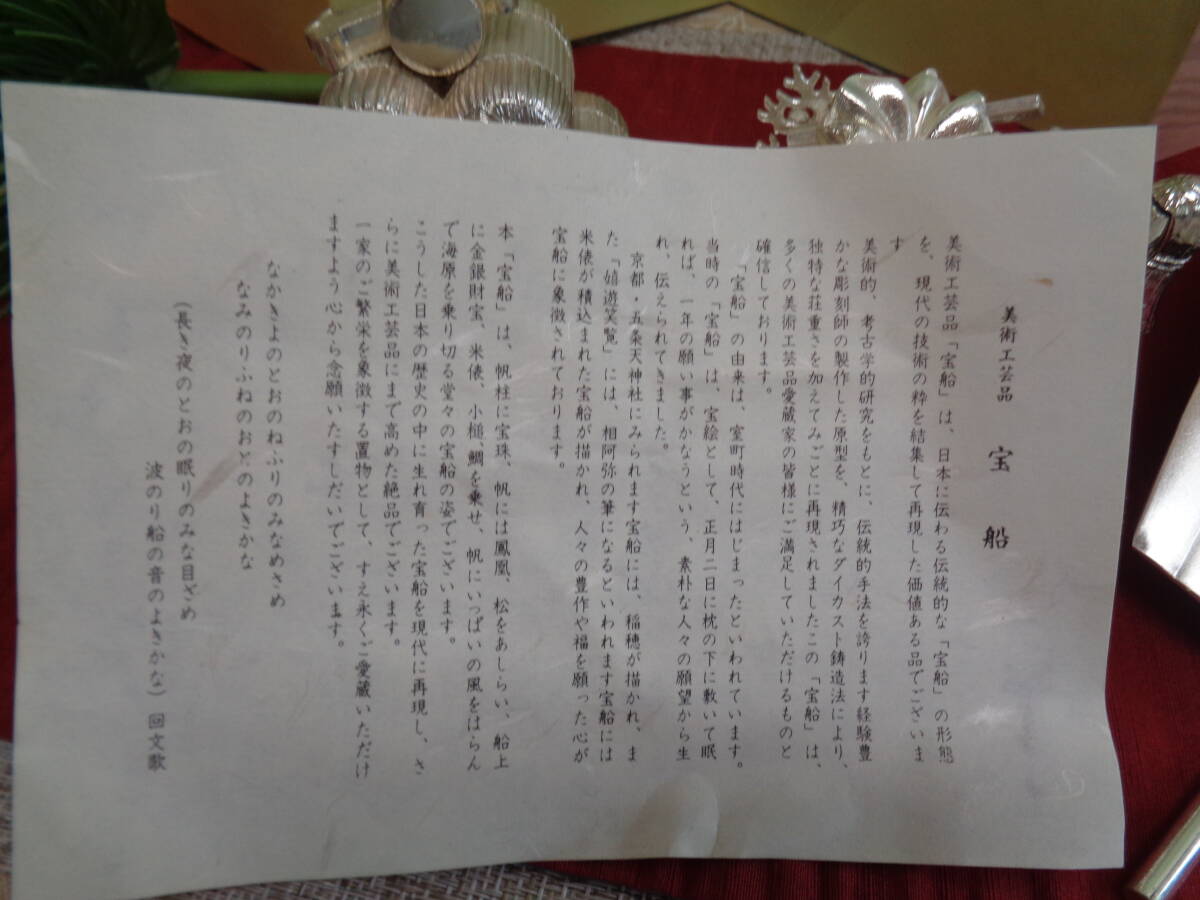 美術工芸品　宝　船
美術工芸品「宝船」は、日本に伝わる伝統的な「宝船」の形態
を、現代の技術の粋を結集して再現した価値ある品でございま
す
美術的、考古学的研究をもとに、伝統的手法を誇ります経験豊
かな彫刻師の製作した原型を、精巧なダイカスト鋳造法により、
独特な荘重さを加えてみごとに再現されましたこの「宝船」は、
多くの美術工芸品愛蔵家の皆様にご満足していただけるものと
確信しております。
「宝船」の由来は、室町時代にはじまったといわれています。
当時の「宝船」は、宝絵として、正月二日に枕の下に敷いて眠
れば、一年の願い事がかなうという、素朴な人々の願望から生
れ、伝えられてきました。
京都・五条天神社にみられます宝船には、稲穂が描かれ、ま
た「嬉遊笑覧」には、相阿弥の筆になるといわれます宝船には
米俵が積込まれた宝船が描かれ、人々の豊作や福を願った心が
宝船に象徴されております。
本「宝船」は、帆柱に宝珠、帆には鳳凰、松をあしらい、船上
に金銀財宝、米俵、小槌、鯛を乗せ、帆にいっぱいの風をはらん
で海原を乗り切る堂々の宝船の姿でございます。
こうした日本の歴史の中に生れ育った宝船を現代に再現し、さ
らに美術工芸品にまで高めた絶品でございます。
一家のご繁栄を象徴する置物として、すえ永くご愛蔵いただけ
ますよう心から念願いたすしだいでございます。
なかきよのとおのねふりのみなめさめ
なみのりふねのおとのよきかな
（長き夜のとおの眠りのみな目ざめ
波のり船の音のよきかな）回文歌